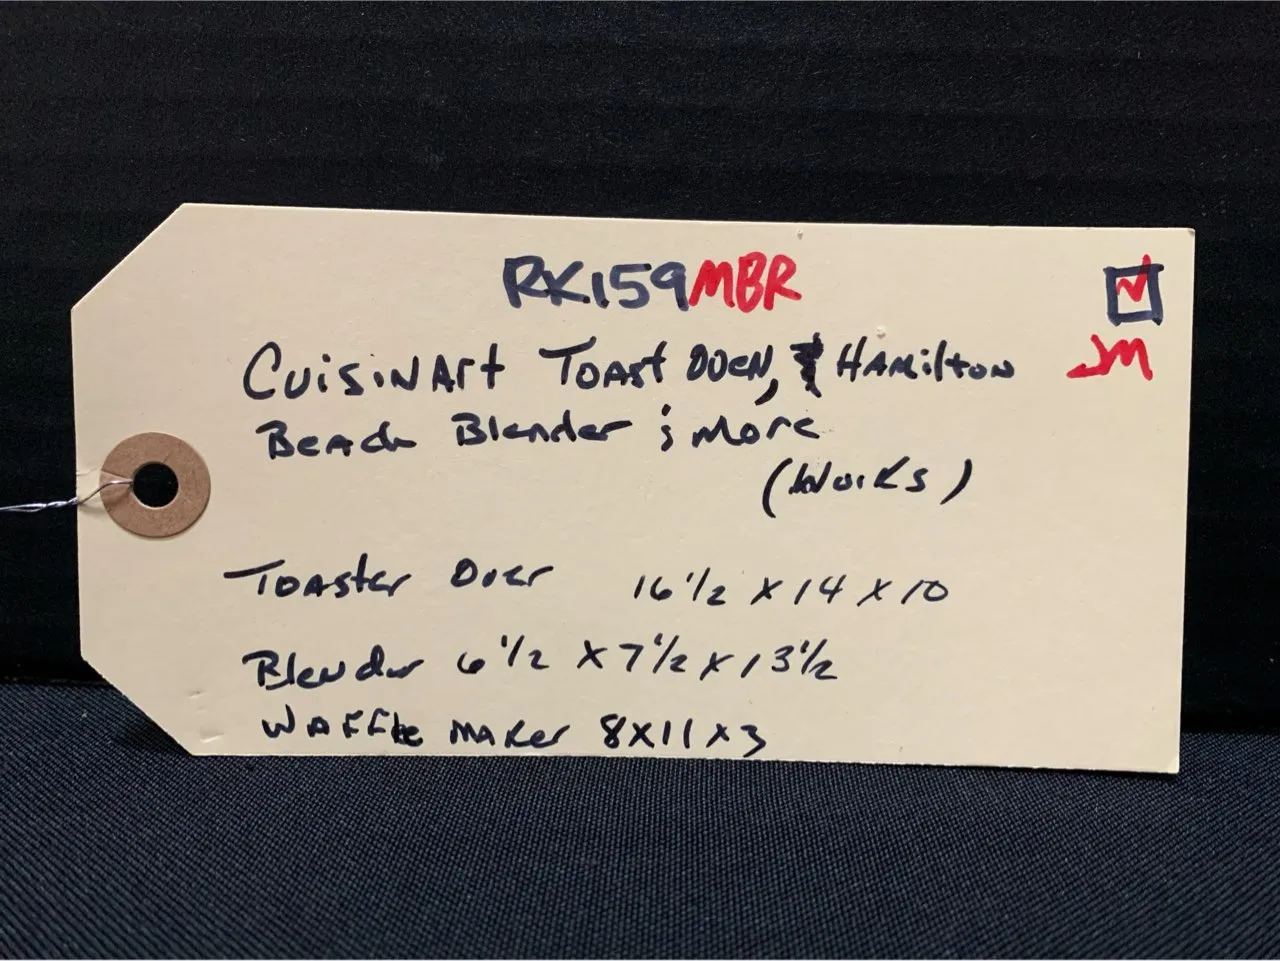 RK159MBR
JM
Cuisinart Toast Oven, Hamilton
Beach Blender & More
(Works)
Toaster Oven 16 1/2 x 14 x 10
Blender 6 1/2 x 7 1/2 x 13 1/2
Waffle Maker 8x11x3